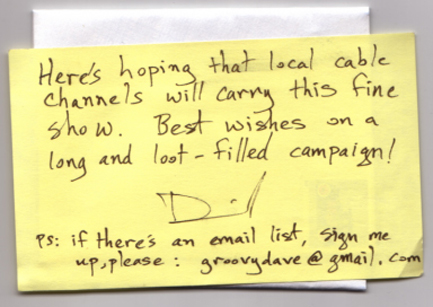 Here's hoping that local cable
channels will carry this fine
show. Best wishes on a
long and loot-filled campaign!
PS: if there's an email list, sign me
up, please: groovydave@gmail.com